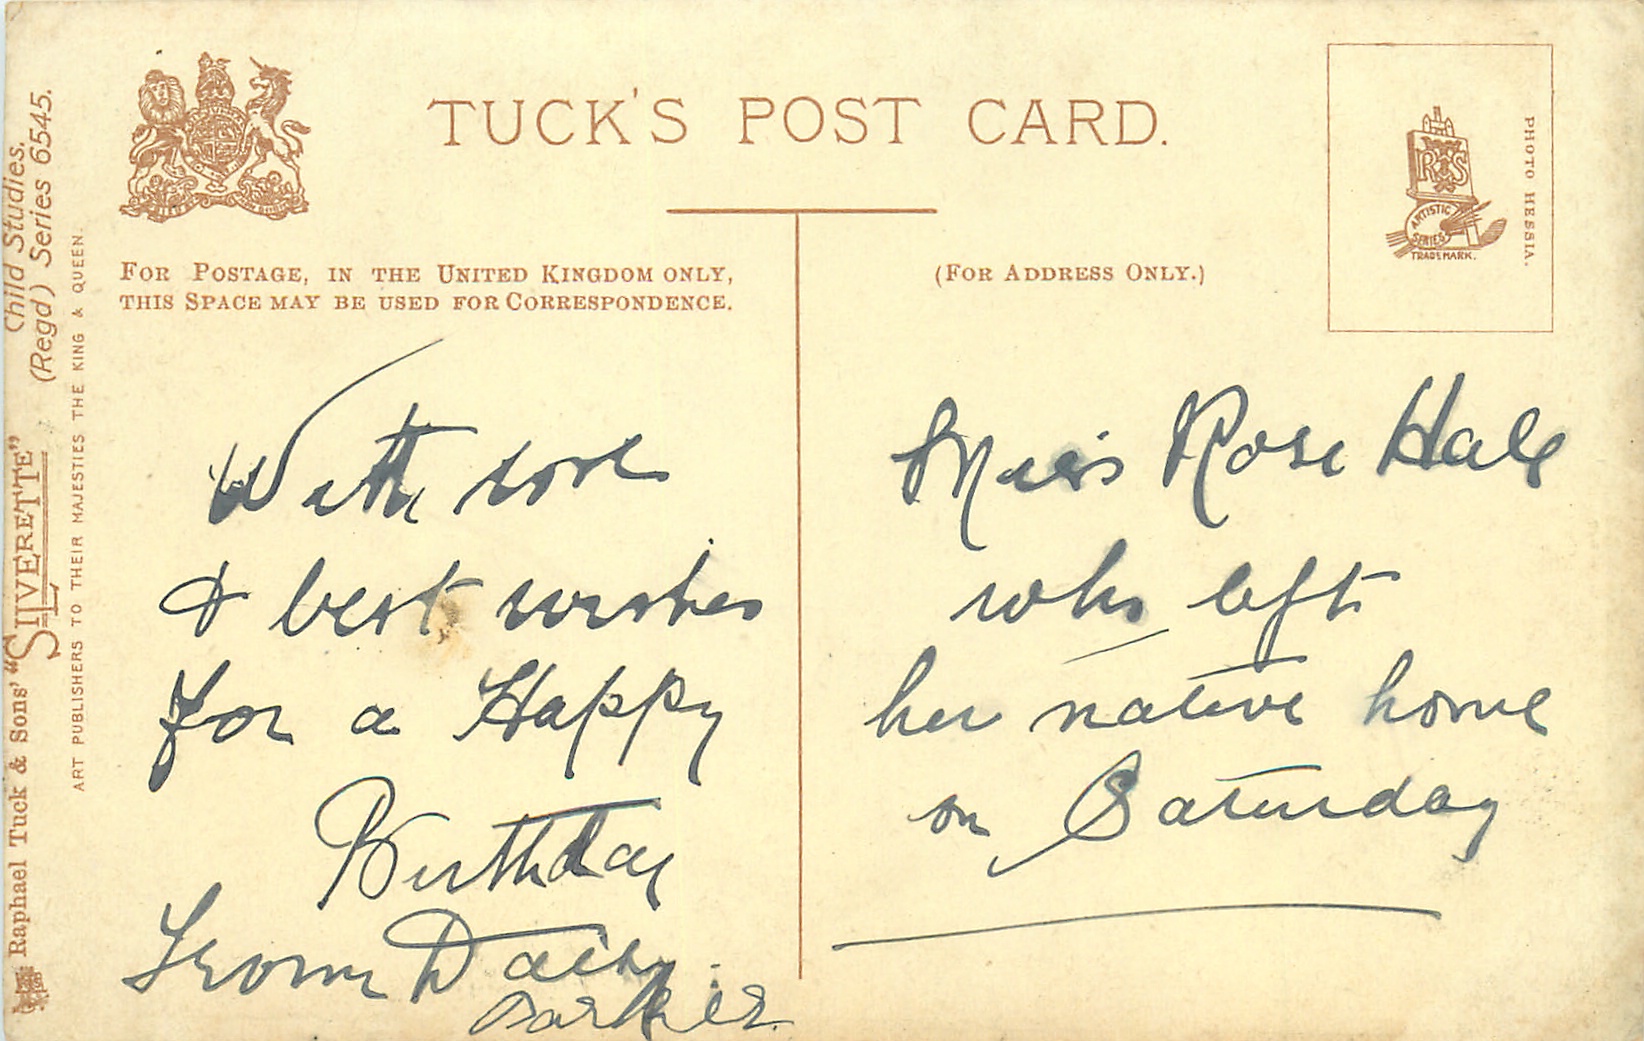 TUCK'S POST CARD.
FOR POSTAGE, IN THE UNITED KINGDOM ONLY,
THIS SPACE MAY BE USED FOR CORRESPONDENCE.
(FOR ADDRESS ONLY.)
PHOTO HESSIA.
ARTISTIC
SERIES
TRADE MARK.
With love
& best wishes
for a Happy
Birthday
From Daisy
Barker
Miss Rose Hale
who left
her native home
on Saturday
Raphael Tuck & Sons' "SILVERETTE"
Child Studies.
(Regd) Series 6545.
ART PUBLISHERS TO THEIR MAJESTIES THE KING & QUEEN.